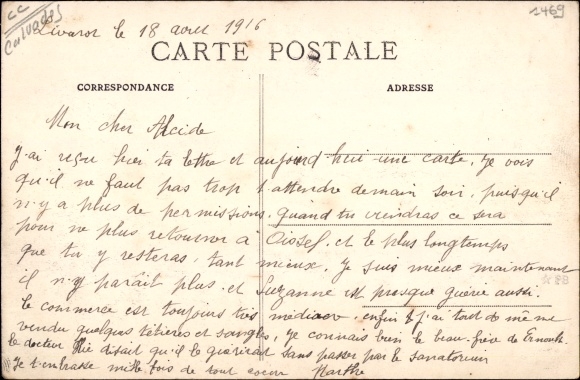 CC
Calvados
1469
Livarot le 18 avril 1916
CARTE POSTALE
CORRESPONDANCE
ADRESSE
Mon cher Alcide
J'ai reçu hier ta lettre et aujourd'hui une carte. Je vois
qu'il ne faut pas trop t'attendre demain soir, puisqu'il
n'y a plus de permissions. Quand tu viendras ce sera
pour ne plus retourner à Oissel, et le plus longtemps
que tu y resteras, tant mieux. Je suis mieux maintenant
il n'y paraît plus. et Suzanne est presque guérie aussi.
Le commerce est toujours très médiocre, enfin j'ai tout de même
vendu quelques têtières et sangles. Je connais bien le beau-frère de Ernoult.
le docteur disait qu'il le guérirait sans passer par le sanatorium
Je t'embrasse mille fois de tout coeur Marthe